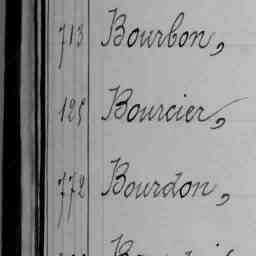 713 Bourbon,
125 Bourcier,
772 Bourdon,